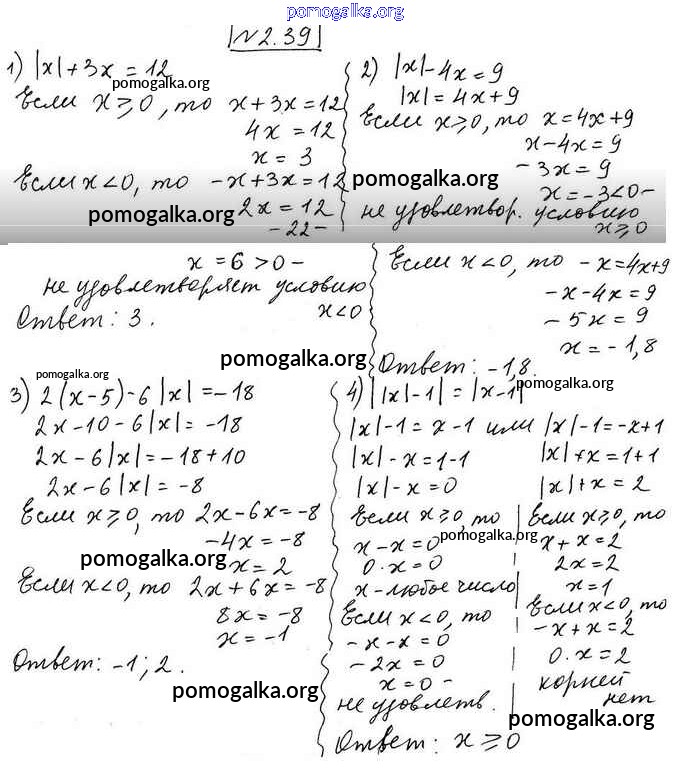 pomogalka.org
|N2.39|
1) |x|+3x=12
pomogalka.org
Если x⩾0, то x+3x=12
4x=12
x=3
Если x<0, то -x+3x=12
pomogalka.org
2x=12
-22-
x=6>0-
не удовлетворяет условию
x<0
Ответ: 3.
2) |x|-4x=9
|x|=4x+9
Если x⩾0, то x=4x+9
x-4x=9
-3x=9
pomogalka.org
x=-3<0-
не удовлетвор. условию
x⩾0
Если x<0, то -x=4x+9
-x-4x=9
-5x=9
x=-1,8
pomogalka.org
Ответ: -1,8.
pomogalka.org
3) 2(x-5)-6|x|=-18
2x-10-6|x|=-18
2x-6|x|=-18+10
2x-6|x|=-8
Если x⩾0, то 2x-6x=-8
-4x=-8
pomogalka.org
x=2
Если x<0, то 2x+6x=-8
8x=-8
x=-1
Ответ: -1; 2.
pomogalka.org
4) ||x|-1|=|x-1|
pomogalka.org
|x|-1=x-1 или |x|-1=-x+1
|x|-x=1-1
|x|-x=0
Если x⩾0, то
x-x=0
0·x=0
x-любое число
Если x<0, то
-x-x=0
-2x=0
x=0-
не удовлетв.
|x|+x=1+1
|x|+x=2
Если x⩾0, то
pomogalka.org
x+x=2
2x=2
x=1
Если x<0, то
-x+x=2
0·x=2
корней
нет
pomogalka.org
Ответ: x⩾0